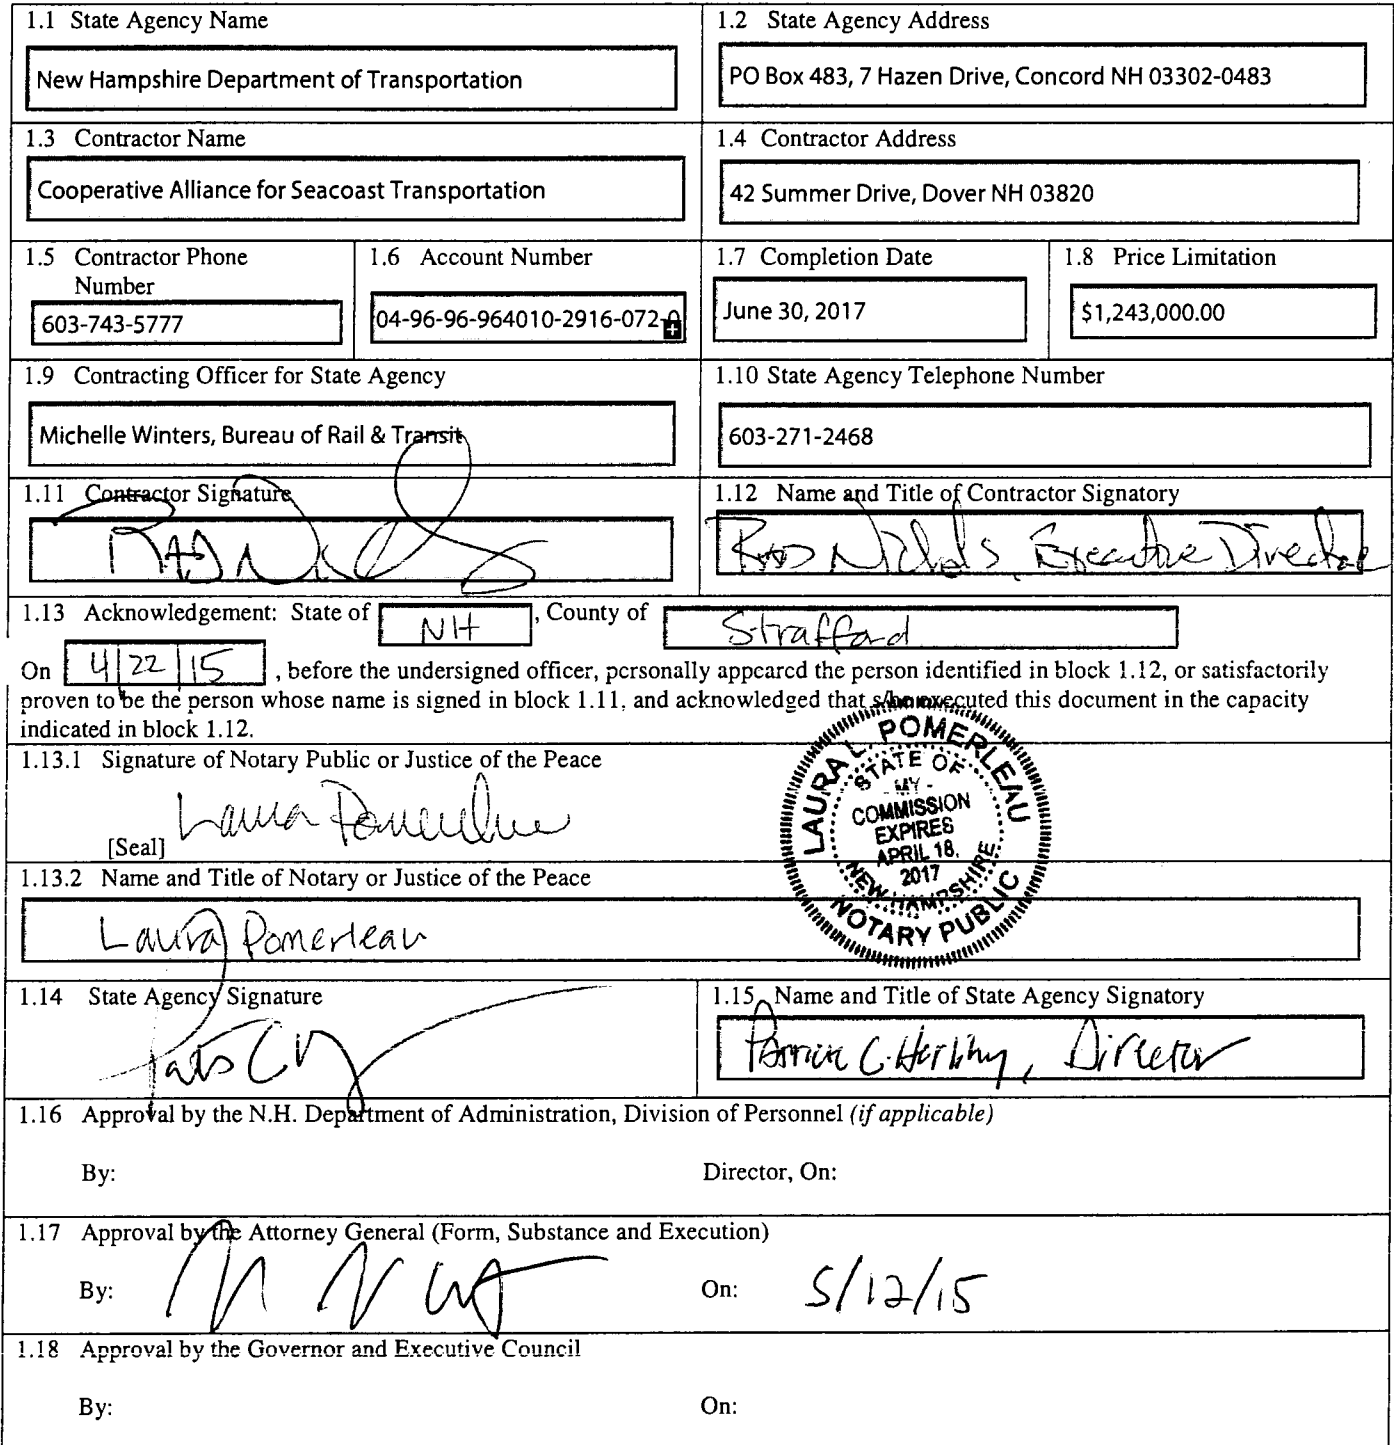 1.1 State Agency Name
1.2 State Agency Address
New Hampshire Department of Transportation
PO Box 483, 7 Hazen Drive, Concord NH 03302-0483
1.3 Contractor Name
1.4 Contractor Address
Cooperative Alliance for Seacoast Transportation
42 Summer Drive, Dover NH 03820
1.5 Contractor Phone
Number
1.6 Account Number
1.7 Completion Date
1.8 Price Limitation
603-743-5777
04-96-96-964010-2916-072-0
June 30, 2017
$1,243,000.00
1.9 Contracting Officer for State Agency
1.10 State Agency Telephone Number
Michelle Winters, Bureau of Rail & Transit
603-271-2468
1.11 Contractor Signature
1.12 Name and Title of Contractor Signatory
Nichols, Executive Director
1.13 Acknowledgement: State of NH, County of Strafford
On 4/22/15, before the undersigned officer, personally appeared the person identified in block 1.12, or satisfactorily
proven to be the person whose name is signed in block 1.11, and acknowledged that s/he executed this document in the capacity
indicated in block 1.12.
1.13.1 Signature of Notary Public or Justice of the Peace
Laura Pomerleau
[Seal]
LAURA L. POMERLEAU
STATE OF
MY
COMMISSION
EXPIRES
APRIL 18,
2017
NEW HAMPSHIRE
NOTARY PUBLIC
1.13.2 Name and Title of Notary or Justice of the Peace
Laura Pomerleau
1.14 State Agency Signature
1.15 Name and Title of State Agency Signatory
Patrick C. Herlihy, Director
1.16 Approval by the N.H. Department of Administration, Division of Personnel (if applicable)
By:
Director, On:
1.17 Approval by the Attorney General (Form, Substance and Execution)
By:
On: 5/12/15
1.18 Approval by the Governor and Executive Council
By:
On: